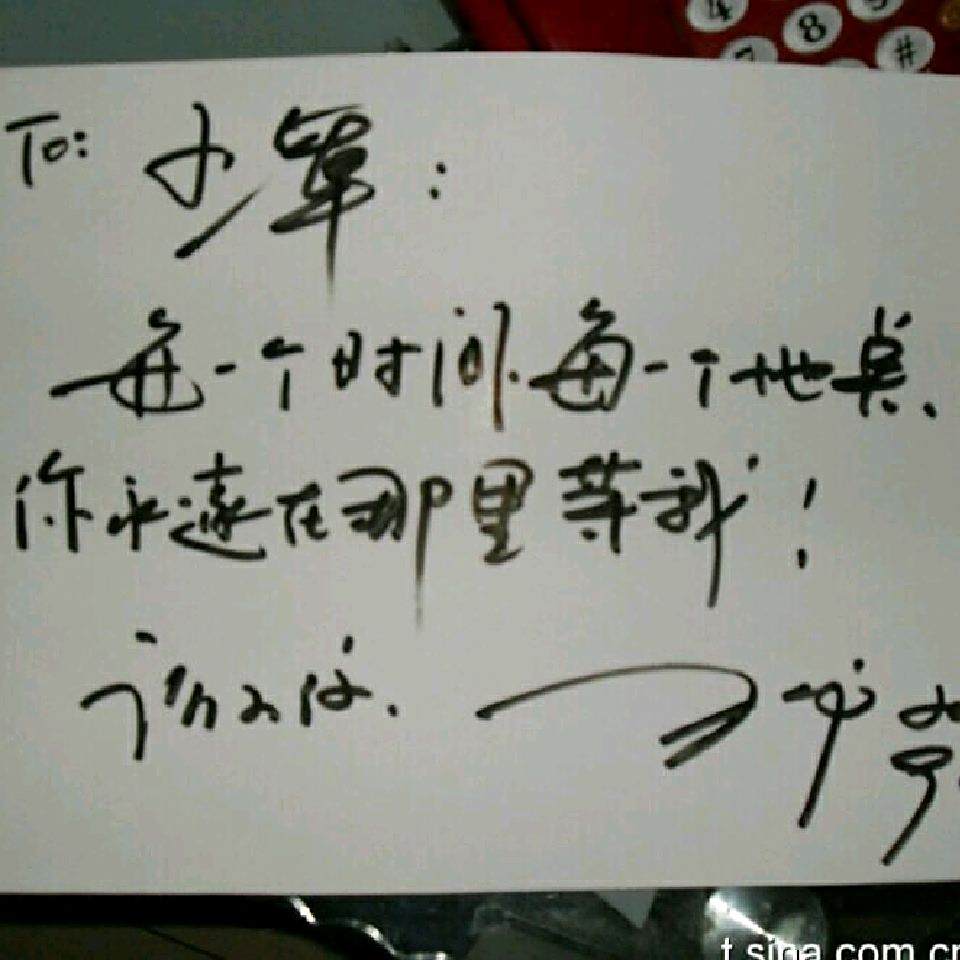 4 8 9
7 #
To: 少軍:
每一个时间.每一个地点.
你永遠在那里等我!
谢谢你.
t.sina.com.cn